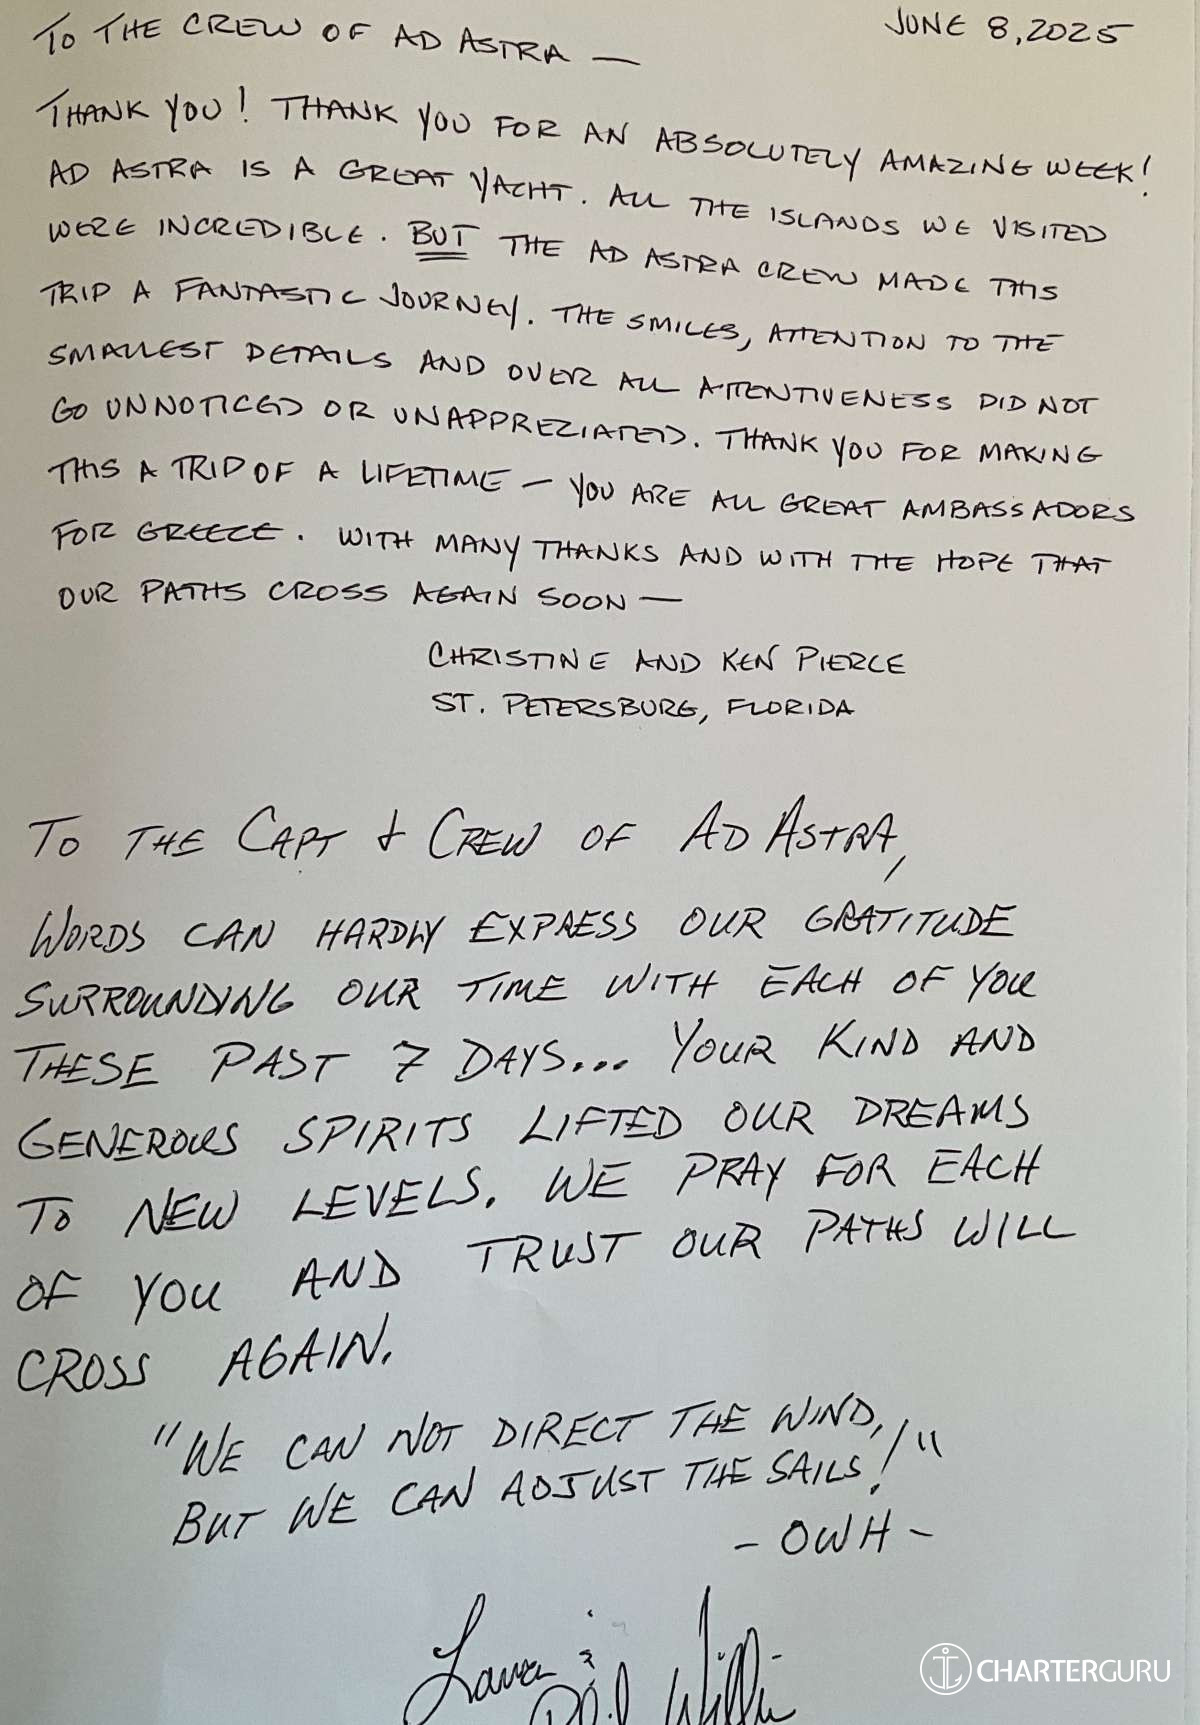 JUNE 8, 2025
TO THE CREW OF AD ASTRA —
THANK YOU! THANK YOU FOR AN ABSOLUTELY AMAZING WEEK!
AD ASTRA IS A GREAT YACHT. ALL THE ISLANDS WE VISITED
WERE INCREDIBLE. BUT THE AD ASTRA CREW MADE THIS
TRIP A FANTASTIC JOURNEY. THE SMILES, ATTENTION TO THE
SMALLEST DETAILS AND OVER ALL ATTENTIVENESS DID NOT
GO UNNOTICED OR UNAPPREZIATED. THANK YOU FOR MAKING
THIS A TRIP OF A LIFETIME — YOU ARE ALL GREAT AMBASSADORS
FOR GREECE. WITH MANY THANKS AND WITH THE HOPE THAT
OUR PATHS CROSS AGAIN SOON —
CHRISTINE AND KEN PIERCE
ST. PETERSBURG, FLORIDA
TO THE CAPT & CREW OF AD ASTRA,
WORDS CAN HARDLY EXPRESS OUR GRATITUDE
SURROUNDING OUR TIME WITH EACH OF YOU
THESE PAST 7 DAYS... YOUR KIND AND
GENEROUS SPIRITS LIFTED OUR DREAMS
TO NEW LEVELS. WE PRAY FOR EACH
OF YOU AND TRUST OUR PATHS WILL
CROSS AGAIN.
"WE CAN NOT DIRECT THE WIND,
BUT WE CAN ADJUST THE SAILS!"
- OWH -
CHARTERGURU